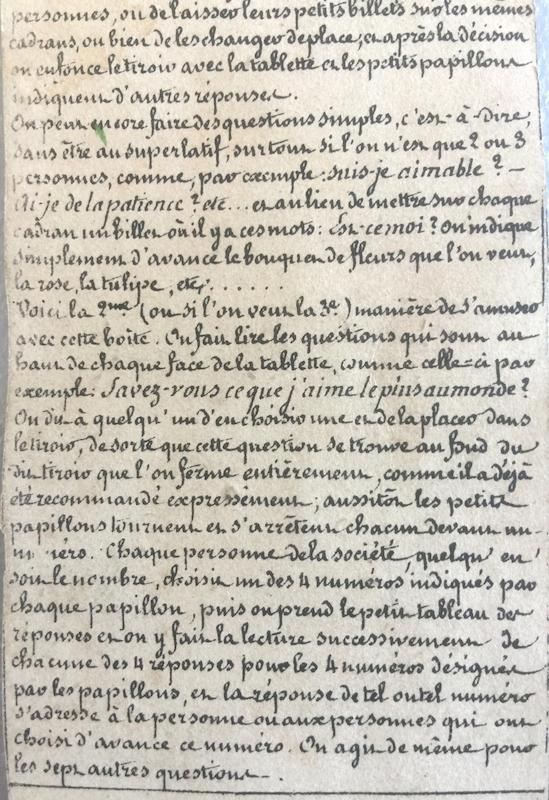 personnes, ou de laisser leurs petits billets sur les mêmes
cadrans, ou bien de les changer de place; et après la décision
on enfonce le tiroir avec la tablette et les petits papillons
indiquent d'autres réponses.
On peut encore faire des questions simples, c'est-à-dire,
sans être au superlatif, surtout si l'on n'est que 2 ou 3
personnes, comme, par exemple: suis-je aimable? —
Ai-je de la patience? etc... et au lieu de mettre sur chaque
cadran un billet où il y a ces mots: Est-ce moi? on indique
simplement d'avance le bouquet de fleurs que l'on veut,
la rose, la tulipe, etc, ......
Voici la 2me (ou si l'on veut la 3e) manière de s'amuser
avec cette boîte. On fait lire les questions qui sont au
haut de chaque face de la tablette, comme celle=ci par
exemple: Savez-vous ce que j'aime le plus au monde?
On dit à quelqu'un d'en choisir une et de la placer dans
le tiroir, de sorte que cette question se trouve au fond du
dit tiroir que l'on ferme entièrement, comme il a déjà
été recommandé expressément; aussitôt les petits
papillons tournent et s'arrêtent chacun devant un
numéro. Chaque personne de la société, quelqu'en
soit le nombre, choisit un des 4 numéros indiqués par
chaque papillon, puis on prend le petit tableau des
réponses et on y fait la lecture successivement de
chacune des 4 réponses pour les 4 numéros désignés
par les papillons, et la réponse de tel ou tel numéro
s'adresse à la personne ou aux personnes qui ont
choisi d'avance ce numéro. On agit de même pour
les sept autres questions.